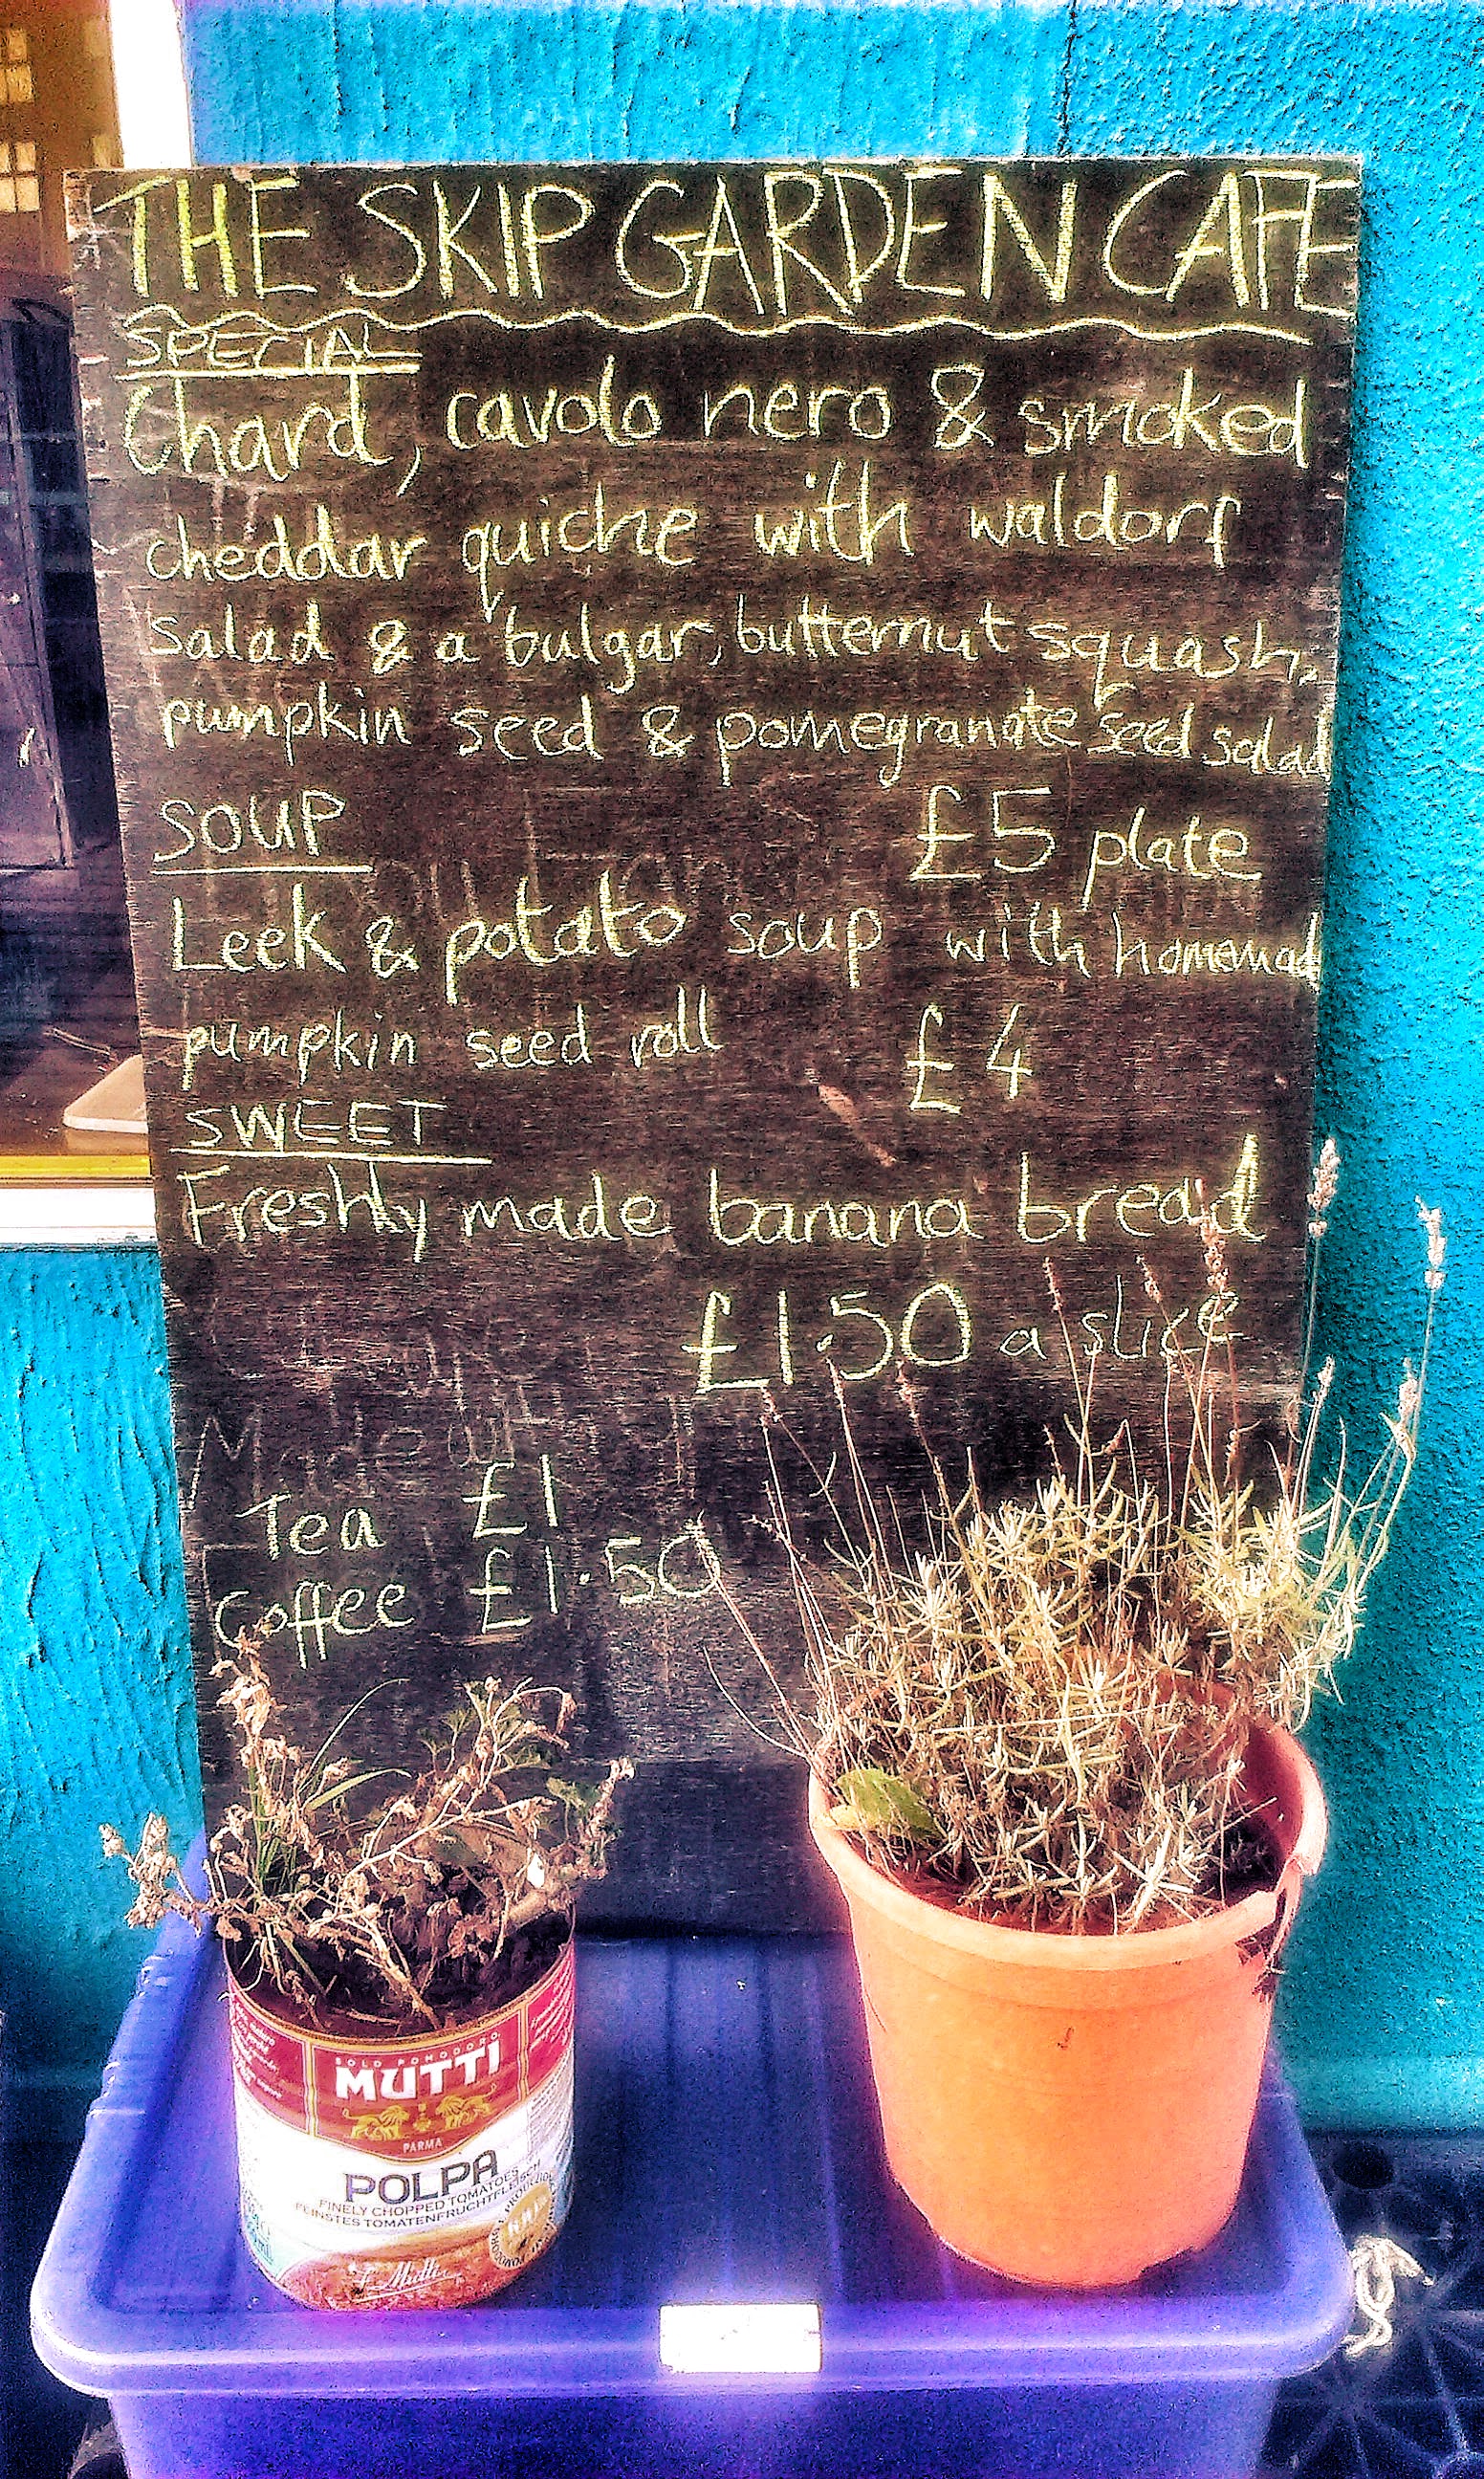 THE SKIP GARDEN CAFE
SPECIAL
Chard, cavolo nero & smoked
cheddar quiche with waldorf
salad & a bulgar, butternut squash,
pumpkin seed & pomegranate seed salad
£5 plate
SOUP
Leek & potato soup with homemad
pumpkin seed roll £4
SWEET
Freshly made banana bread
£1.50 a slice
Tea £1
Coffee £1.50
SOLO POMODORO
MUTTI
PARMA
POLPA
FINELY CHOPPED TOMATOES
FEINSTES TOMATENFRUCHTFLEISCH
Mutti